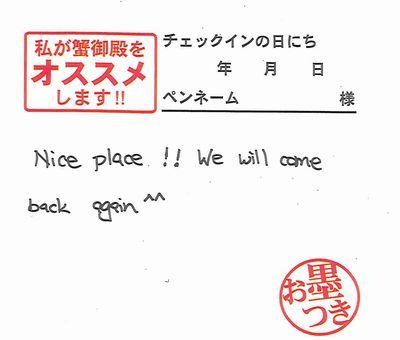 私が蟹御殿を
オススメ
します!!
チェックインの日にち
年 月 日
ペンネーム 様
Nice place !! We will come
back again ^^
お墨
つき